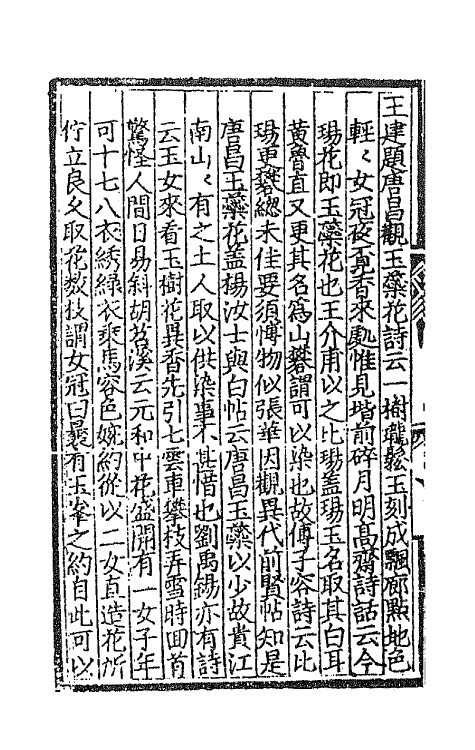 王建題唐昌觀玉蘂花詩云一樹瓏鬆玉刻成飄廊點地色
輕〻女冠夜覓香來處惟見堦前碎月明髙齋詩話云今
瑒花即玉蘂花也王介甫以之比瑒盖瑒玉名取其白耳
黄魯直又更其名爲山礬謂可以染也故傅子容詩云比
瑒更礬緫未佳要須博物似張華因觀異代前賢帖知是
唐昌玉蘂花盖楊汝士與白帖云唐昌玉蘂以少故貴江
南山〻有之土人取以供染事不甚惜也劉禹錫亦有詩
云玉女來看玉樹花異香先引七雲車攀枝弄雪時囬首
驚怪人間日易斜胡苕溪云元和中花盛開有一女子年
可十七八衣綉綠衣乘馬容色婉約從以二女直造花所
佇立良乆取花數枝謂女冠曰曩有玉峯之約自此可以